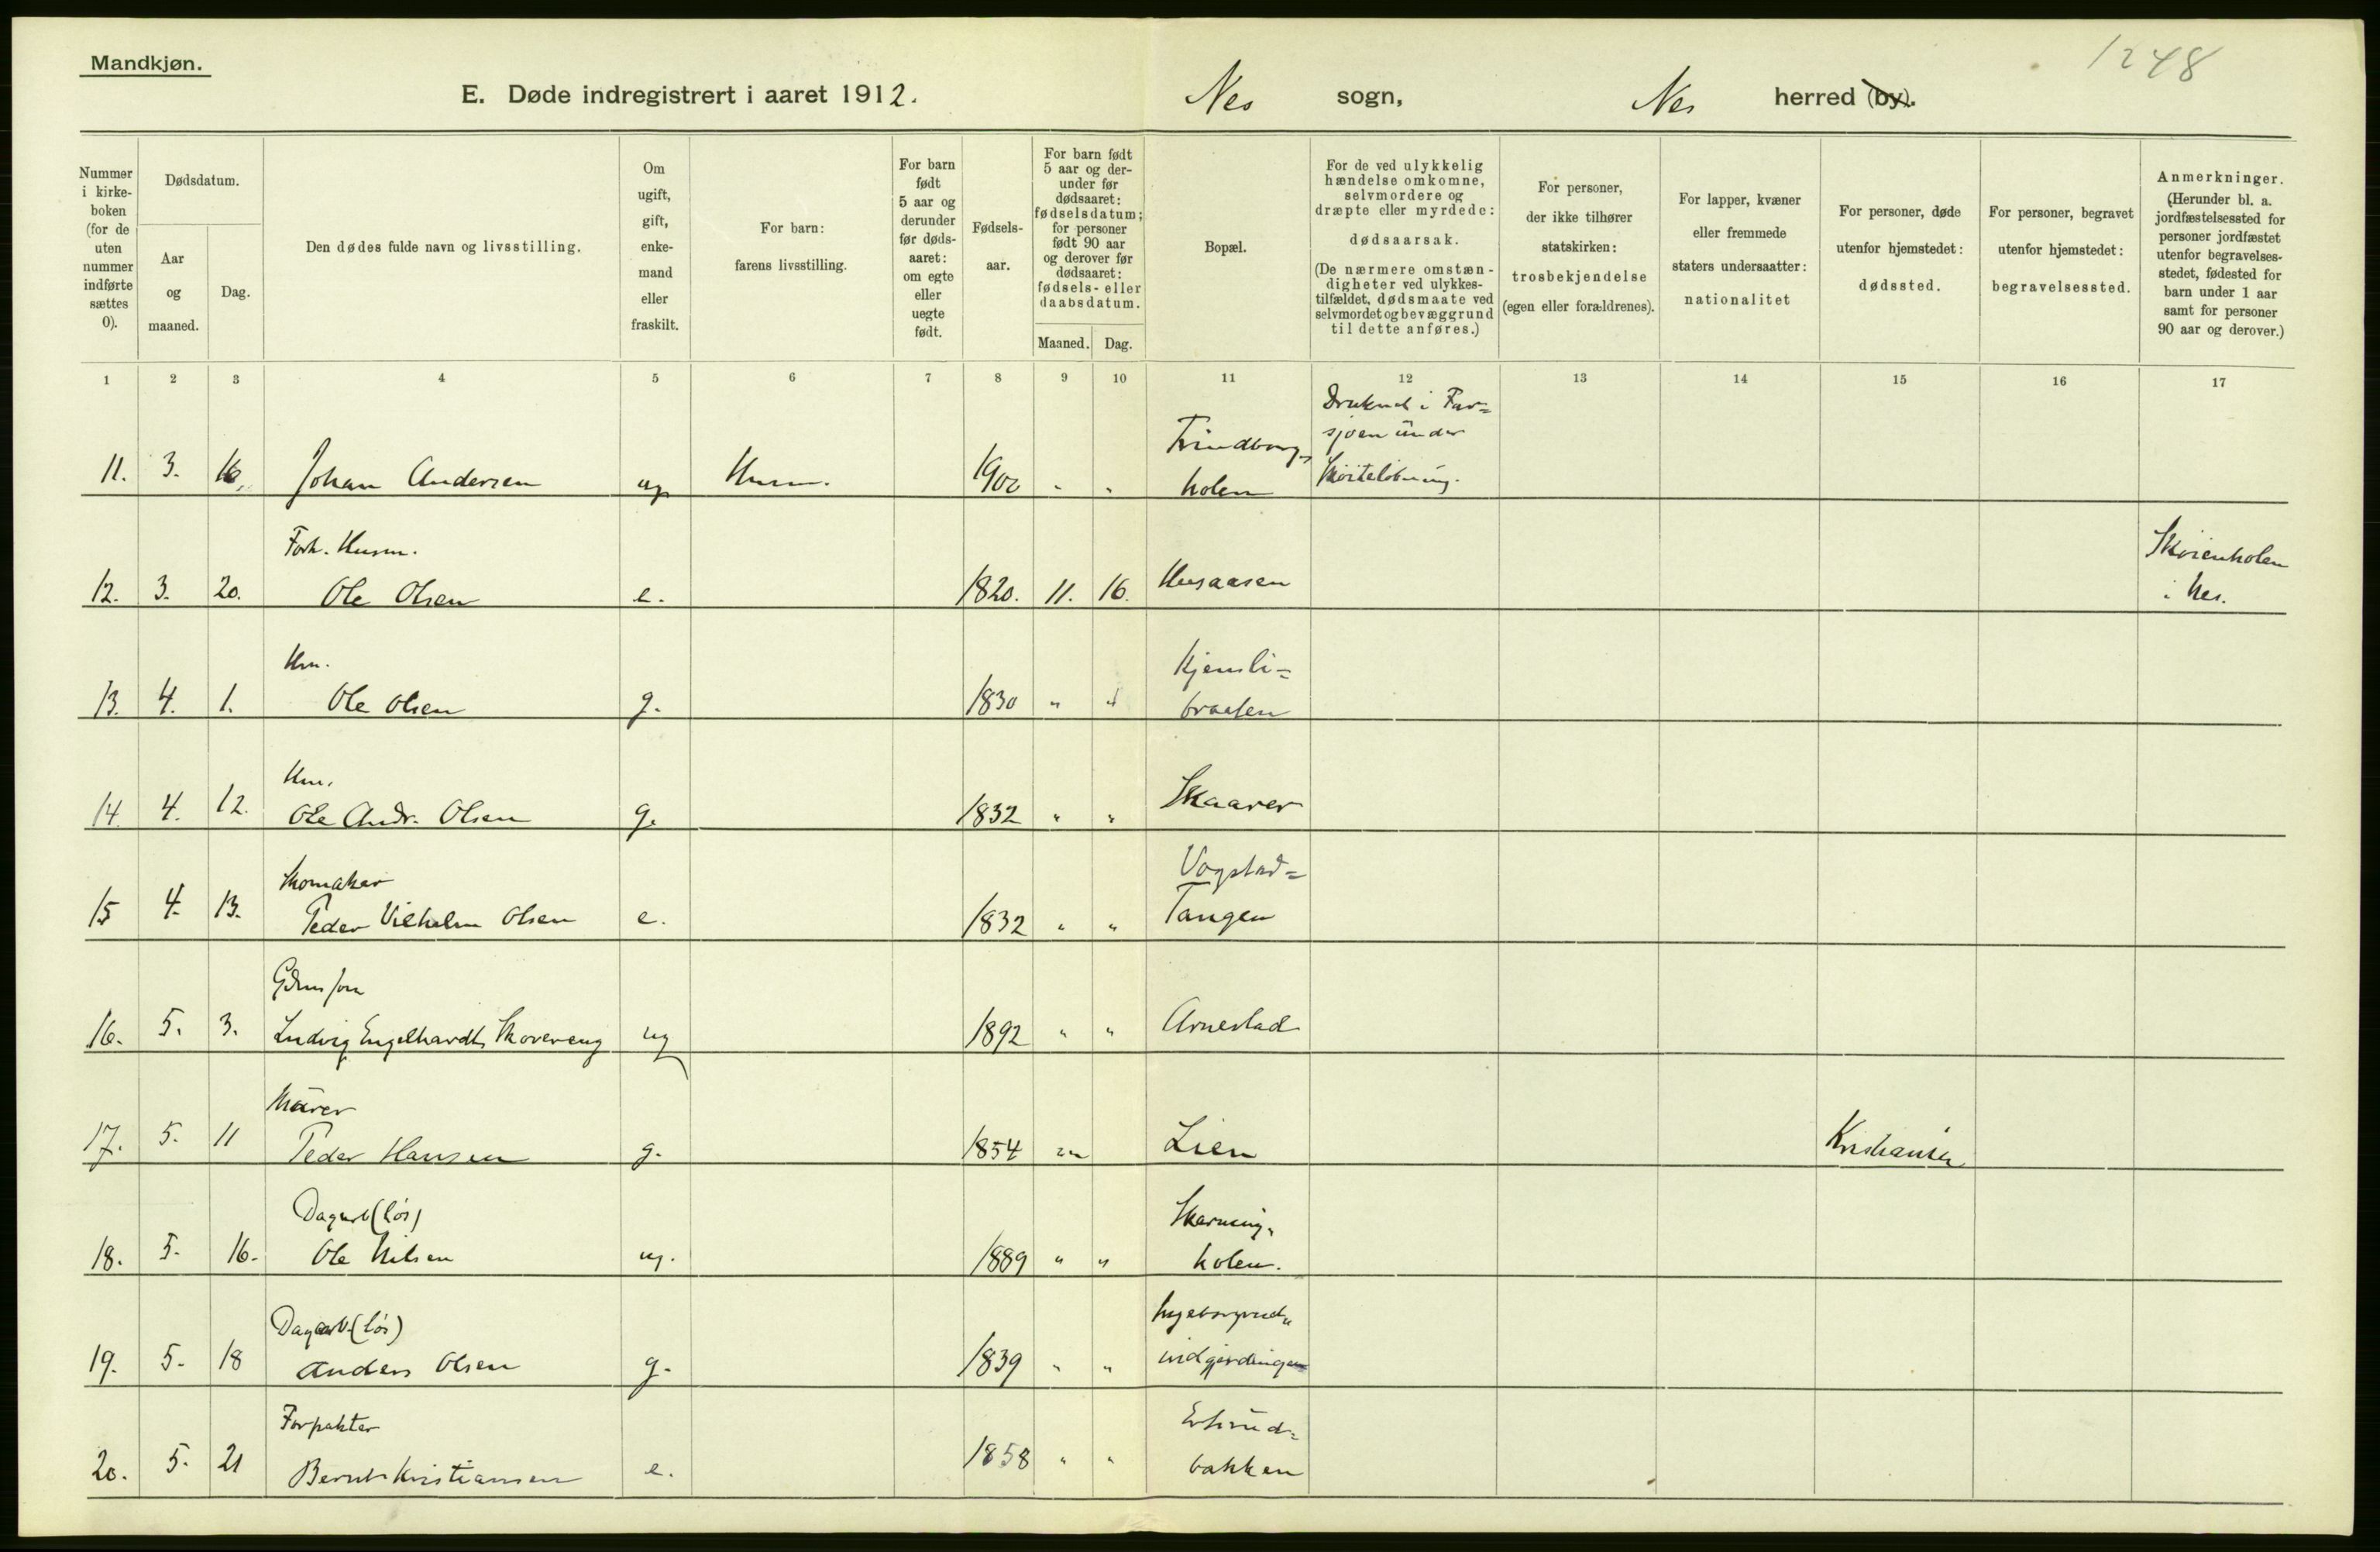 Mandkjøn.
1248
E. Døde indregistrert i aaret 1912. Nes sogn, Nes herred (by).
Nummer i kirke-boken (for de uten nummer indførte sættes 0).
Dødsdatum.
Aar og maaned.
Dag.
Den dødes fulde navn og livsstilling.
Om ugift, gift, enke-mand eller fraskilt.
For barn: farens livsstilling.
For barn født 5 aar og derunder før døds-aaret: om egte eller uegte født.
Fødsels-aar.
For barn født 5 aar og der-under før dødsaaret: fødselsdatum; for personer født 90 aar og derover før dødsaaret: fødsels- eller daabsdatum.
Maaned.
Dag.
Bopæl.
For de ved ulykkelig hændelse omkomne, selvmordere og dræpte eller myrdede: dødsaarsak. (De nærmere omstæn-digheter ved ulykkes-tilfældet, dødsmaate ved selvmordet og bevæggrund til dette anføres.)
For personer, der ikke tilhører statskirken: trosbekjendelse (egen eller forældrenes).
For lapper, kvæner eller fremmede staters undersaatter: nationalitet
For personer, døde utenfor hjemstedet: dødssted.
For personer, begravet utenfor hjemstedet: begravelsessted.
Anmerkninger. (Herunder bl. a. jordfæstelsessted for personer jordfæstet utenfor begravelses-stedet, fødested for barn under 1 aar samt for personer 90 aar og derover.)
1 2 3 4 5 6 7 8 9 10 11 12 13 14 15 16 17
11. 3. 16. Johan Andersen ug Husm. 1900 " " holen
Druknet i
sjøen under
12. 3. 20. Forh. Husm.
Ole Olsen e. 1820. 11. 16. Husaasen Skøienholen
i Nes.
13. 4. 1. Hm.
Ole Olsen g. 1830 " " Kjensli=
braaten
14. 4. 12. Hm.
Ole Andr. Olsen g. 1832 " " Skaarer
15 4. 13. Skomaker
Peder Vilhelm Olsen e. 1832 " " Vogstad=
Tangen
16. 5. 3. Gdms søn
Ludvig Engelhardt Skovereng ug 1892 " " Arnestad
17. 5. 11 Murer
Peder Hansen g. 1854 " " Lien Kristiania
18. 5. 16. Dagarb (løs)
Ole Nilsen ug. 1889 " "
holen.
19. 5. 18 Dagarb. (løs)
Anders Olsen g. 1839 " "
20. 5. 21 Forpakter
Bernt Kristiansen e. 1858 " "
bakken